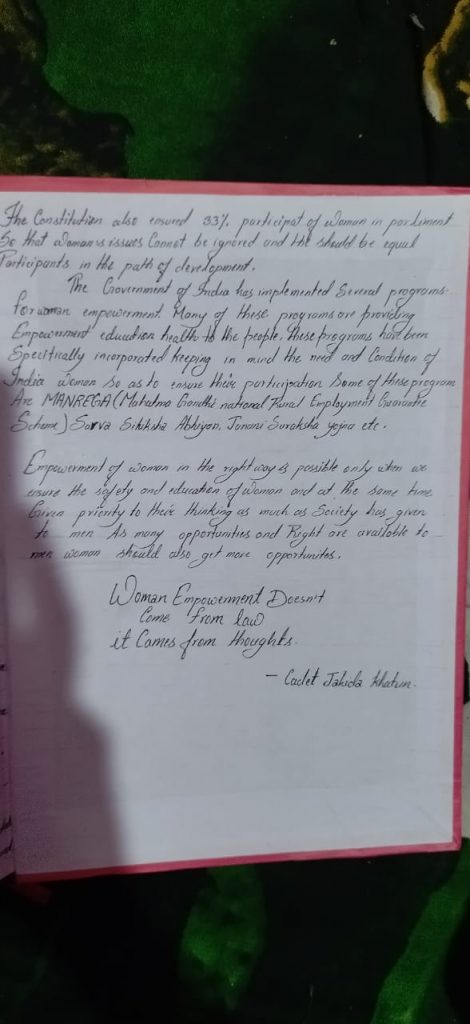 The Constitution also ensured 33% participat of Woman in parliment
So that woman's issues Cannot be ignored and the should be equal
Participants in the path of development.
The Government of India has implemented Several programs
for woman empowerment. Many of these programs are providing
Empowerment education health to the people. These programs have been
Specifically incorporated keeping in mind the need and Condition of
India Woman So as to ensure their participation Some of these program
Are MANREGA (Mahatma Gandhi national Rural Employment Guarantee
Scheme) Sarva Sikksha Abhiyan, Janani Suraksha yojna etc.
Empowerment of woman in the right way is possible only when we
ensure the safety and education of Woman and at the same time
Given priority to their thinking as much as Society has given
to men As many opportunities and Right are available to
men woman should also get more opportunites.
Woman Empowerment Doesn't
Come from law
it Comes from thoughts.
- Cadet Jahida Khatun.